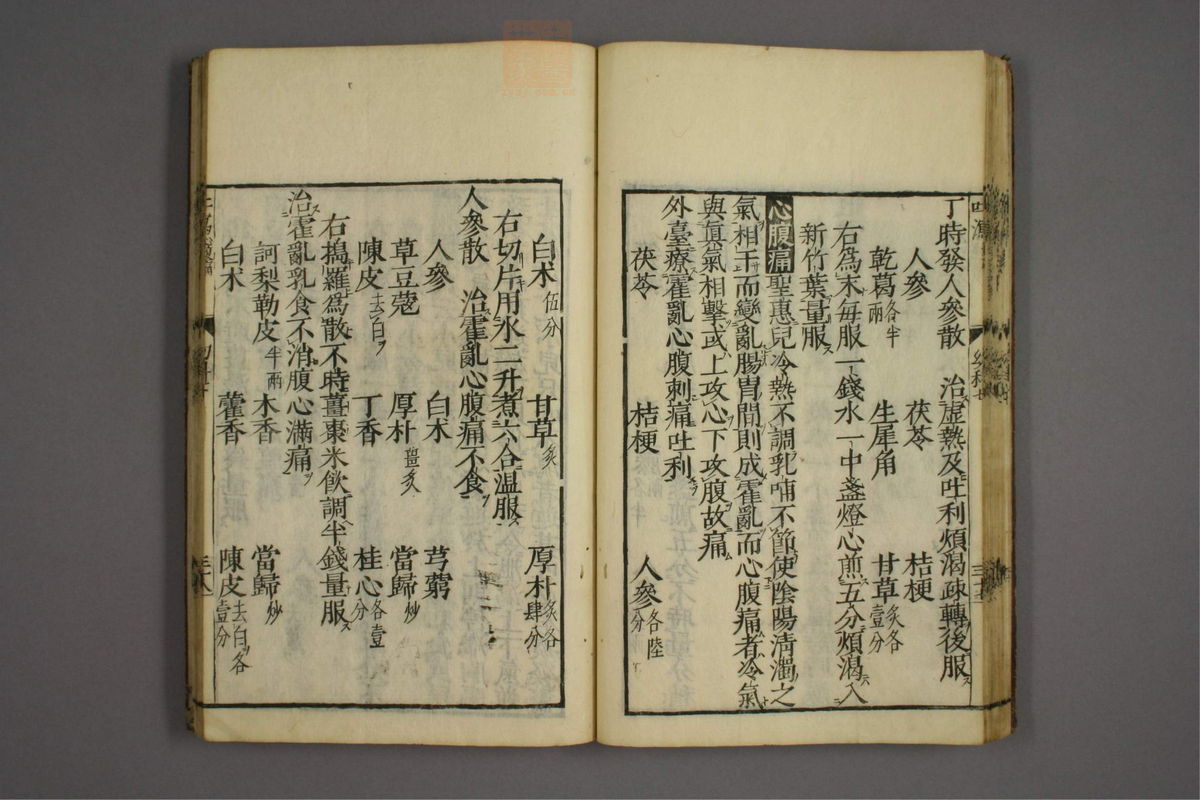 丁時發人參散　治虛熱及吐利煩渴疎轉後服
人參　茯苓　桔梗
乾葛各半兩　生犀角　甘草炙各壹分
右爲末每服一錢水一中盞燈心煎五分煩渴入
新竹葉量服
心腹痛聖惠兒冷熱不調乳哺不節使陰陽清濁之
氣相干而變亂腸胃間則成霍亂而心腹痛者冷氣
與眞氣相擊或上攻心下攻腹故痛
外臺療霍亂心腹刺痛吐利
茯苓　桔梗　人參各陸分
白朮伍分　甘草炙　厚朴炙各肆分
右切片用水二升煮六合温服
人參散　治霍亂心腹痛不食
人參　白朮　芎藭
草豆蔻　厚朴薑炙　當歸炒
陳皮去白　丁香　桂心各壹分
右搗羅爲散不時薑棗米飲調半錢量服
治霍亂乳食不消腹心滿痛
訶梨勒皮半兩　木香　當歸炒
白朮　藿香　陳皮去白各壹分